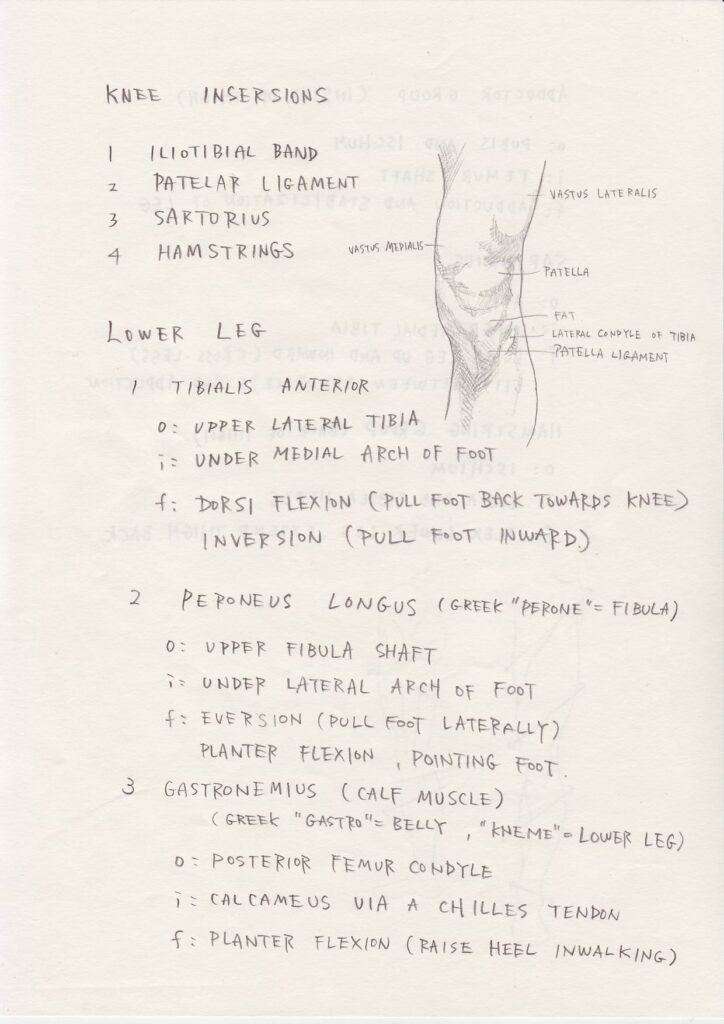 KNEE INSERSIONS
1 ILIOTIBIAL BAND
2 PATELAR LIGAMENT
3 SARTORIUS
4 HAMSTRINGS
VASTUS LATERALIS
VASTUS MEDIALIS
PATELLA
FAT
LATERAL CONDYLE OF TIBIA
PATELLA LIGAMENT
LOWER LEG
1 TIBIALIS ANTERIOR
O: UPPER LATERAL TIBIA
i: UNDER MEDIAL ARCH OF FOOT
f: DORSI FLEXION (PULL FOOT BACK TOWARDS KNEE)
INVERSION (PULL FOOT INWARD.)
2 PERONEUS LONGUS (GREEK "PERONE"= FIBULA)
O: UPPER FIBULA SHAFT
i: UNDER LATERAL ARCH OF FOOT
f: EVERSION (PULL FOOT LATERALLY)
PLANTER FLEXION, POINTING FOOT.
3 GASTRONEMIUS (CALF MUSCLE)
(GREEK "GASTRO"= BELLY, "KNEME"= LOWER LEG)
O: POSTERIOR FEMUR CONDYLE
i: CALCAMEUS VIA A CHILLES TENDON
f: PLANTER FLEXION (RAISE HEEL INWALKING)